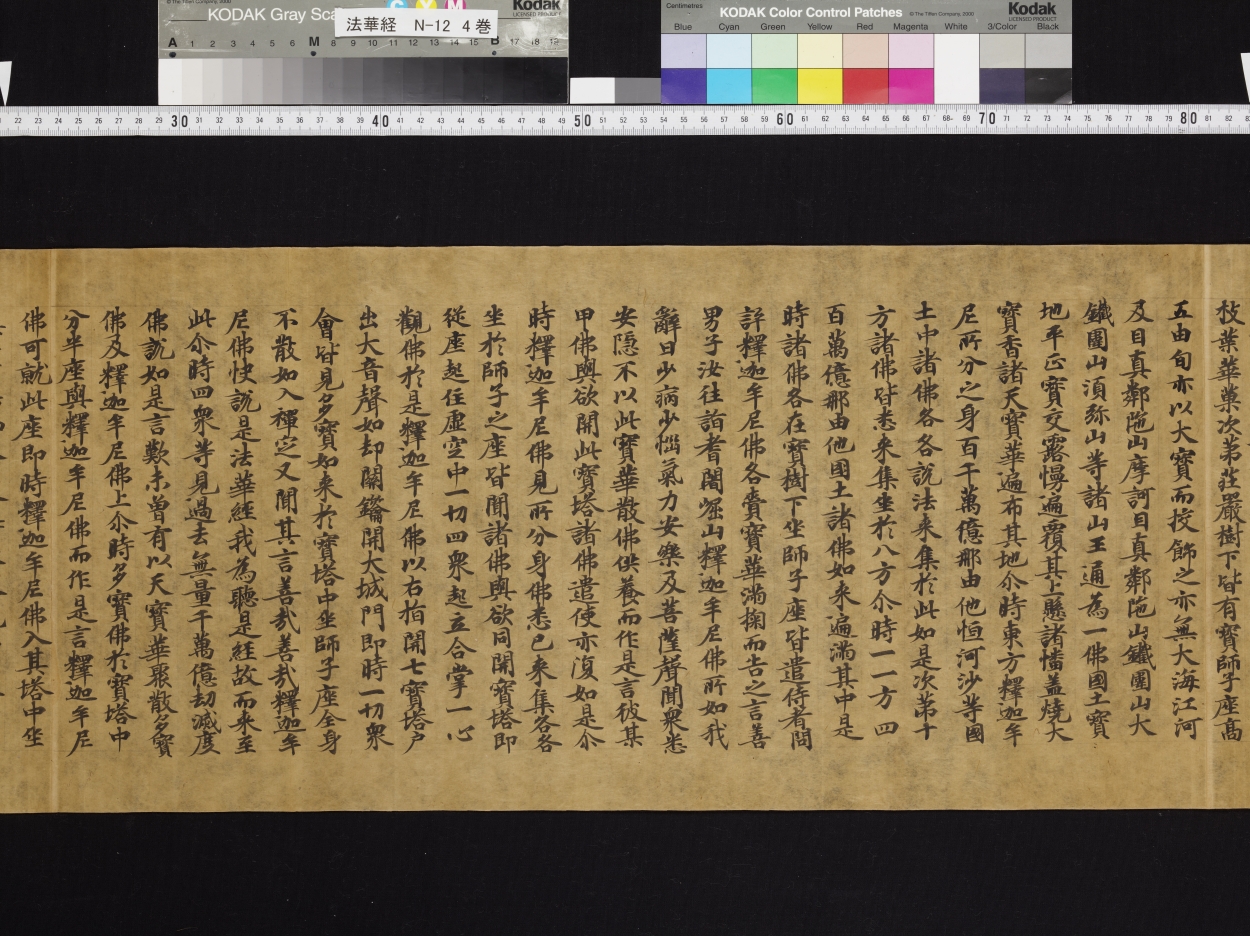 KODAK Gray Sca
© The Tiffen Company, 2000
C Y M
Kodak
LICENSED PRODUCT
法華経 N-12 4巻
A 1 2 3 4 5 6 M 8 9 10 11 12 13 14 15 B 17 18 19
Centimetres
KODAK Color Control Patches
© The Tiffen Company, 2000
Kodak
LICENSED PRODUCT
Blue Cyan Green Yellow Red Magenta White 3/Color Black
22 23 24 25 26 27 28 29 30 31 32 33 34 35 36 37 38 39 40 41 42 43 44 45 46 47 48 49 50 51 52 53 54 55 56 57 58 59 60 61 62 63 64 65 66 67 68 69 70 71 72 73 74 75 76 77 78 79 80 81 82
枝葉華菓次第莊嚴樹下皆有寶師子座高
五由旬亦以大寶而挍飾之亦無大海江河
及目真鄰陁山摩訶目真鄰陁山鐵圍山大
鐵圍山須弥山等諸山王通為一佛國土寶
地平正寶交露幔遍覆其上懸諸幡蓋燒大
寶香諸天寶華遍布其地尒時東方釋迦牟
尼所分之身百千萬億那由他恒河沙等國
土中諸佛各各說法来集於此如是次第十
方諸佛皆悉来集坐於八方尒時一一方四
百萬億那由他國土諸佛如来遍滿其中是
時諸佛各在寶樹下坐師子座皆遣侍者問
訊釋迦牟尼佛各賷寶華滿掬而告之言善
男子汝往詣耆闍崛山釋迦牟尼佛所如我
辭曰少病少惱氣力安樂及菩薩聲聞衆悉
安隱不以此寶華散佛供養而作是言彼某
甲佛與欲開此寶塔諸佛遣使亦復如是尒
時釋迦牟尼佛見所分身佛悉已来集各各
坐於師子之座皆聞諸佛與欲同開寶塔即
從座起住虛空中一切四衆起立合掌一心
觀佛於是釋迦牟尼佛以右指開七寶塔户
出大音聲如却關鑰開大城門即時一切衆
會皆見多寶如来於寶塔中坐師子座全身
不散如入禪定又聞其言善哉善哉釋迦牟
尼佛快說是法華經我為聽是經故而来至
此尒時四衆等見過去無量千萬億劫滅度
佛說如是言歎未曾有以天寶華聚散多寶
佛及釋迦牟尼佛上尒時多寶佛於寶塔中
分半座與釋迦牟尼佛而作是言釋迦牟尼
佛可就此座即時釋迦牟尼佛入其塔中坐